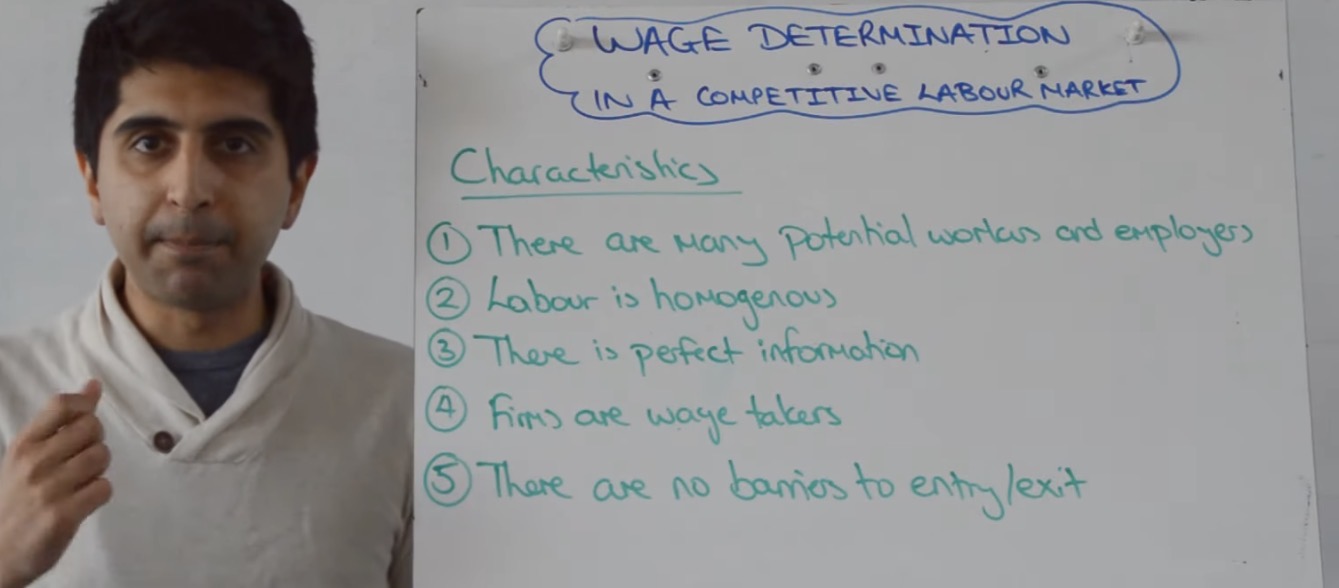 WAGE DETERMINATION
IN A COMPETITIVE LABOUR MARKET
Characteristics
① There are many potential workers and employers
② Labour is homogenous
③ There is perfect information
④ Firms are wage takers
⑤ There are no barriers to entry/exit